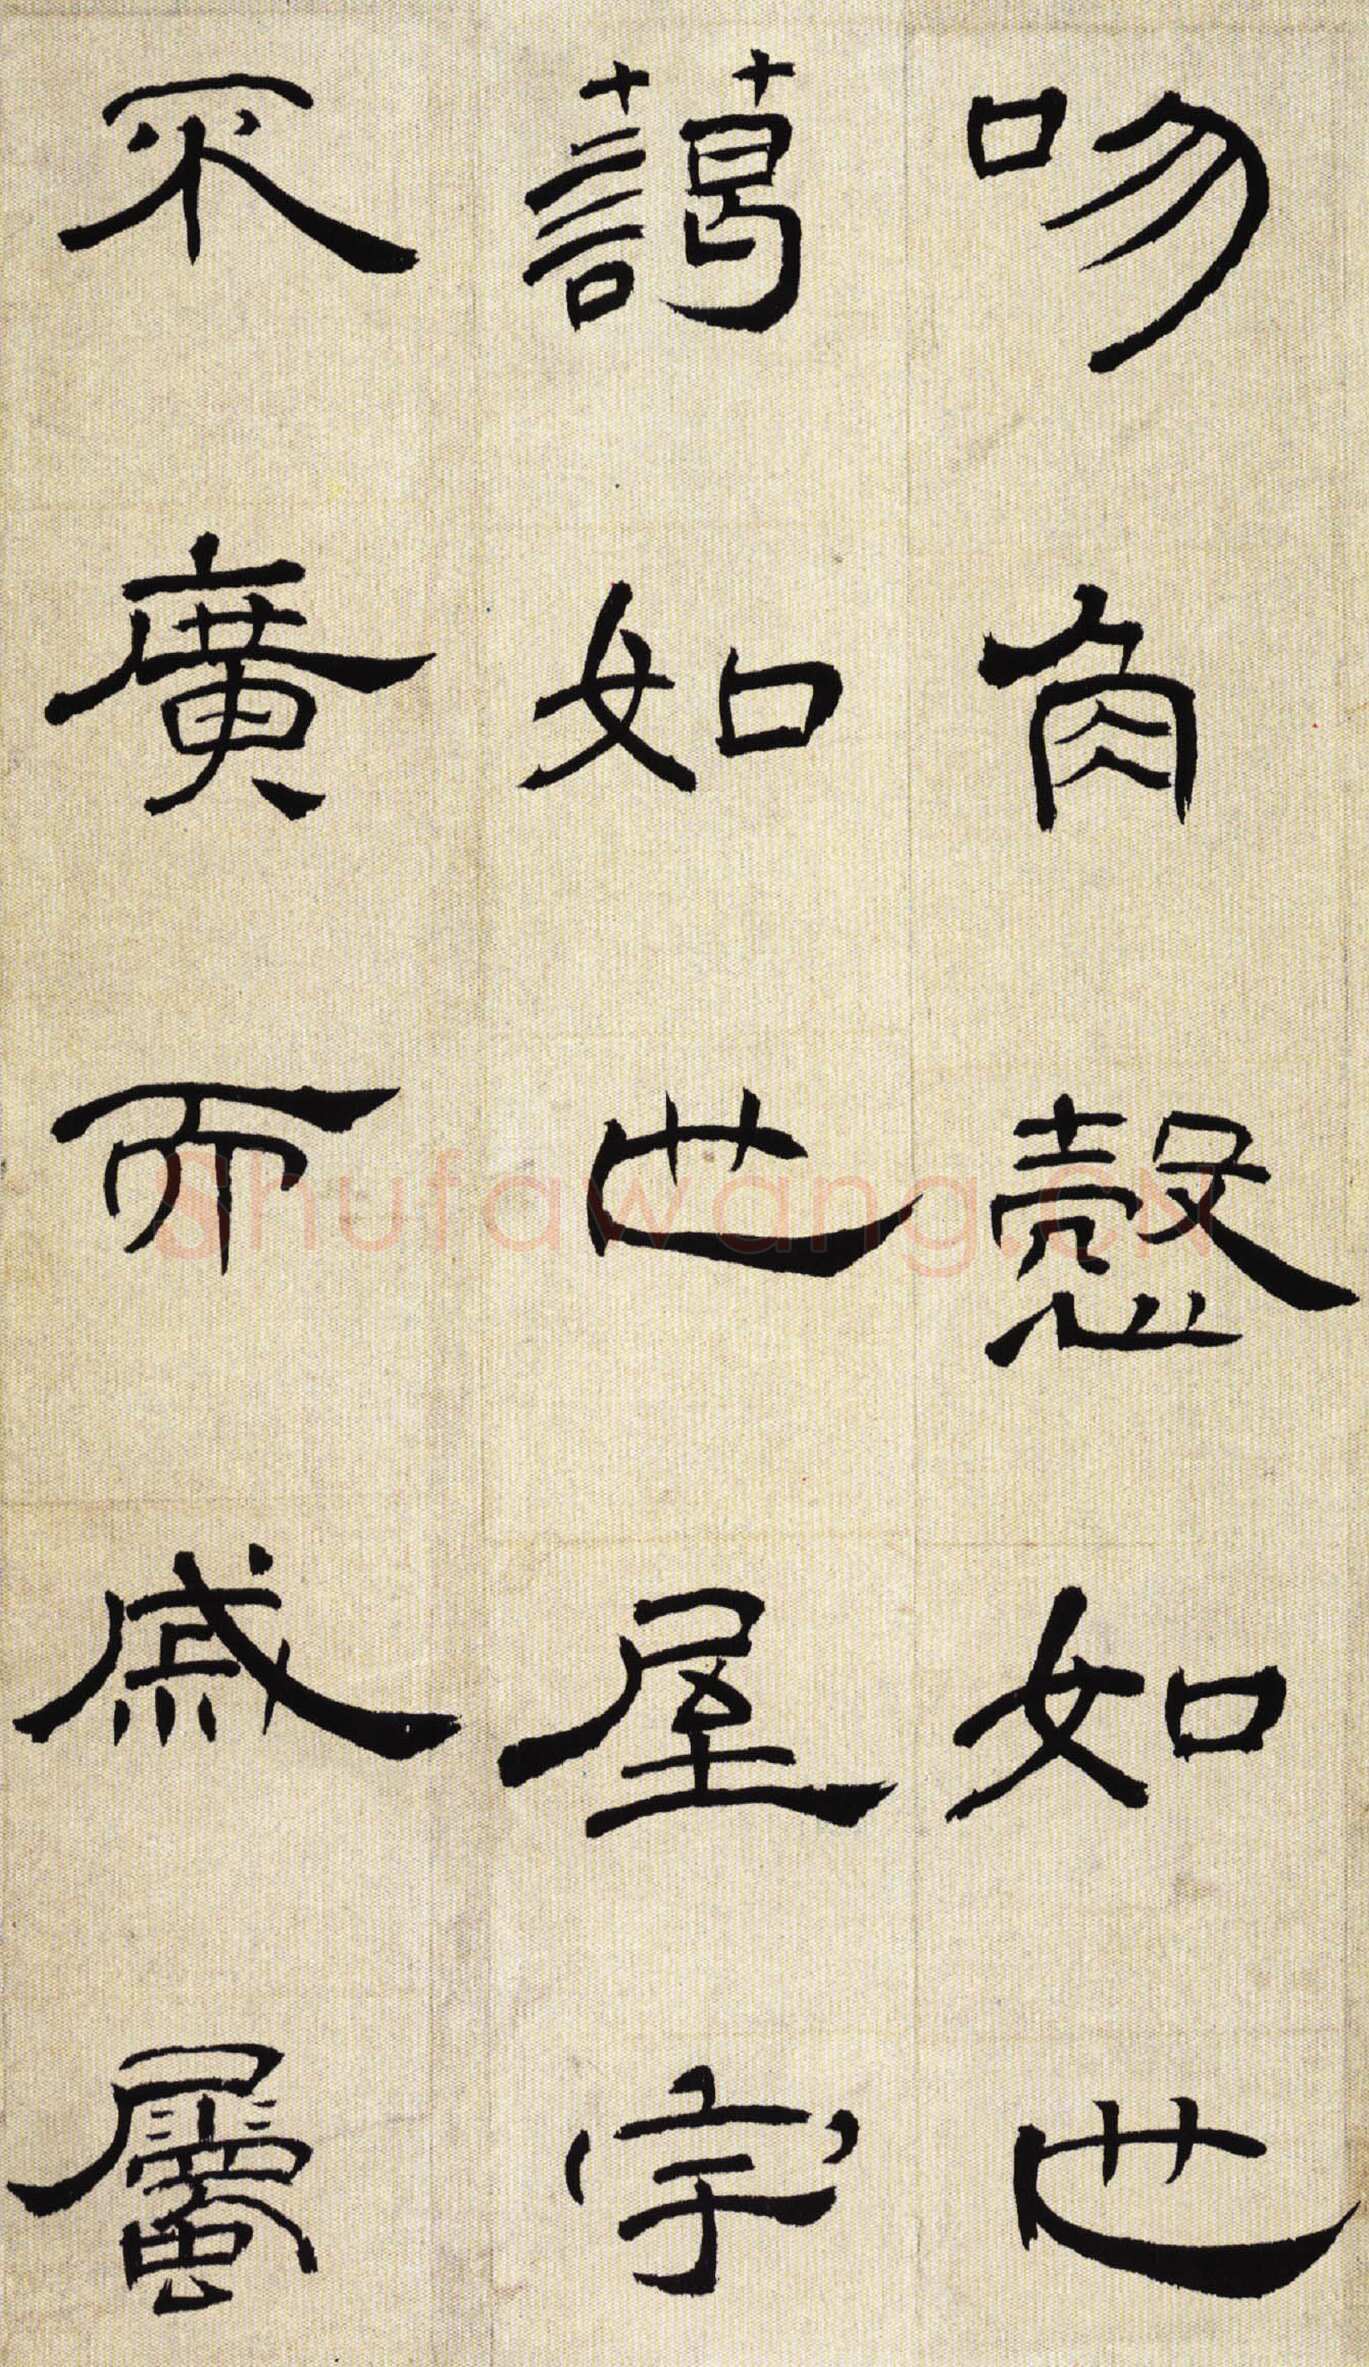 吻角慤如也
藹如也屋宇
不廣而戚屬
Shufawang.CN